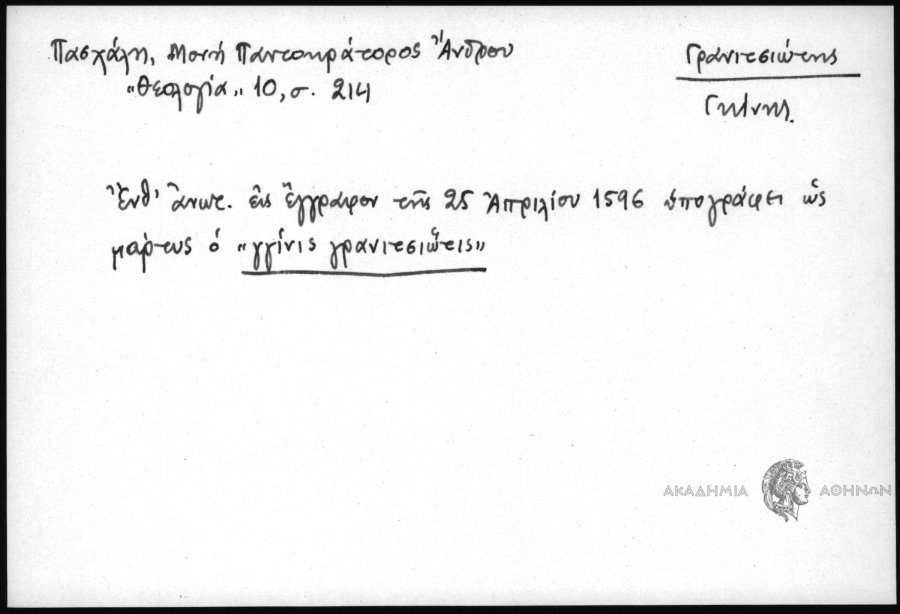 Πασχάλη, Μονή Παντοκράτορος Ἄνδρου
"Θεολογία" 10, σ. 214
Γρανιτσιώτης
Γκίνης.
Ἐνθ' ἄνωτ. εἰς ἔγγραφον τῆς 25 Ἀπριλίου 1596 ὑπογράφει ὡς
μάρτυς ὁ "γγίνις γρανιτσιῶτεις"
ΑΚΑΔΗΜΙΑ ΑΘΗΝΩΝ